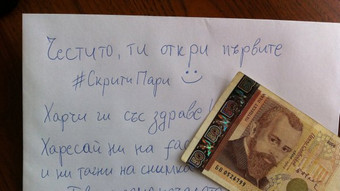 Честито, ти откри първите
#СкритиПари
Харчи ги със здраве!
Харесай ни на fa
и ни тагни на снимка